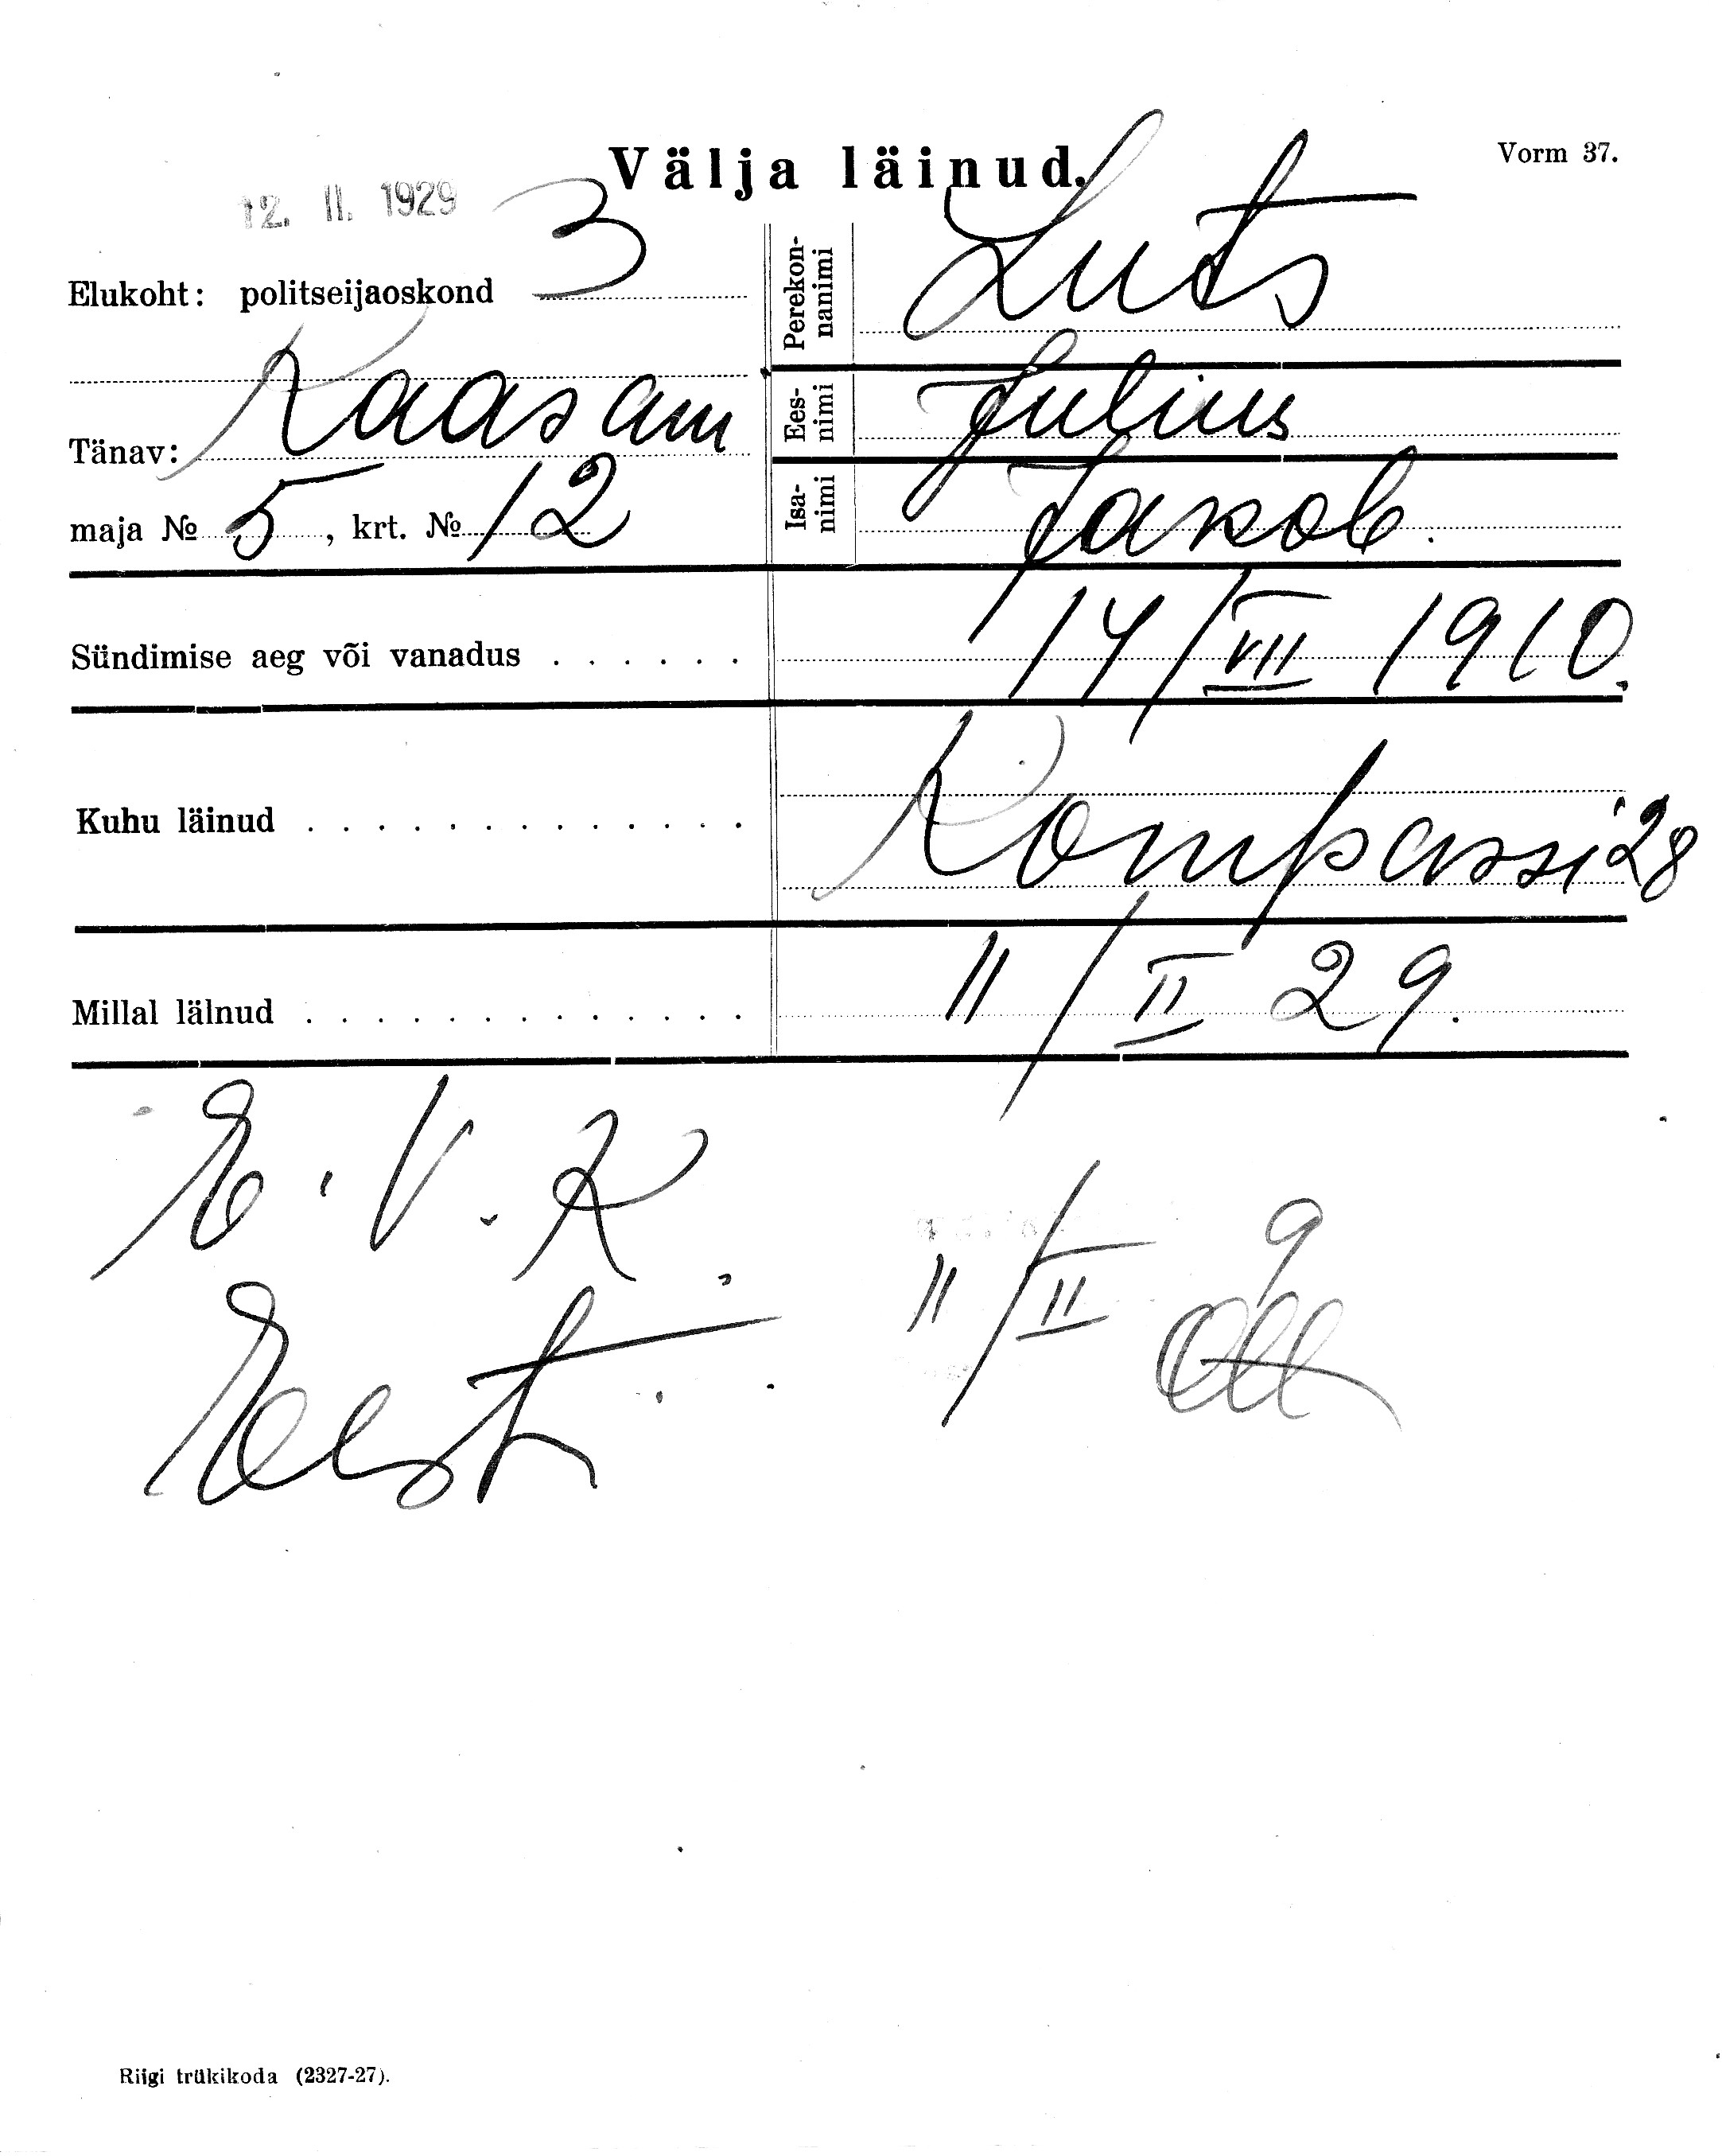 Välja läinud.
Vorm 37.
12. II. 1929
Elukoht: politseijaoskond 3
Tänav: Kaasani
maja № 5, krt. № 12
Perekon-
nanimi
Luts
Ees-
nimi
Julius
Isa-
nimi
Jakob.
Sündimise aeg või vanadus . . . . . . 14/VII 1910.
Kuhu läinud . . . . . . . . . . . . . Kompassi 28
Millal läinud . . . . . . . . . . . . . 11/II 29.
E. V. K.
Eest.
11/II 9
Riigi trükikoda (2327-27).